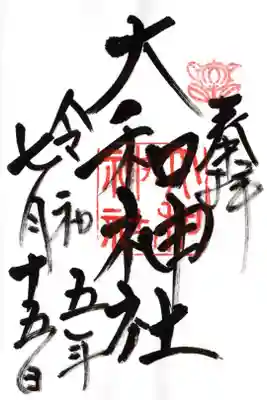 奉拝
大和神社
令和五年
七月十五日